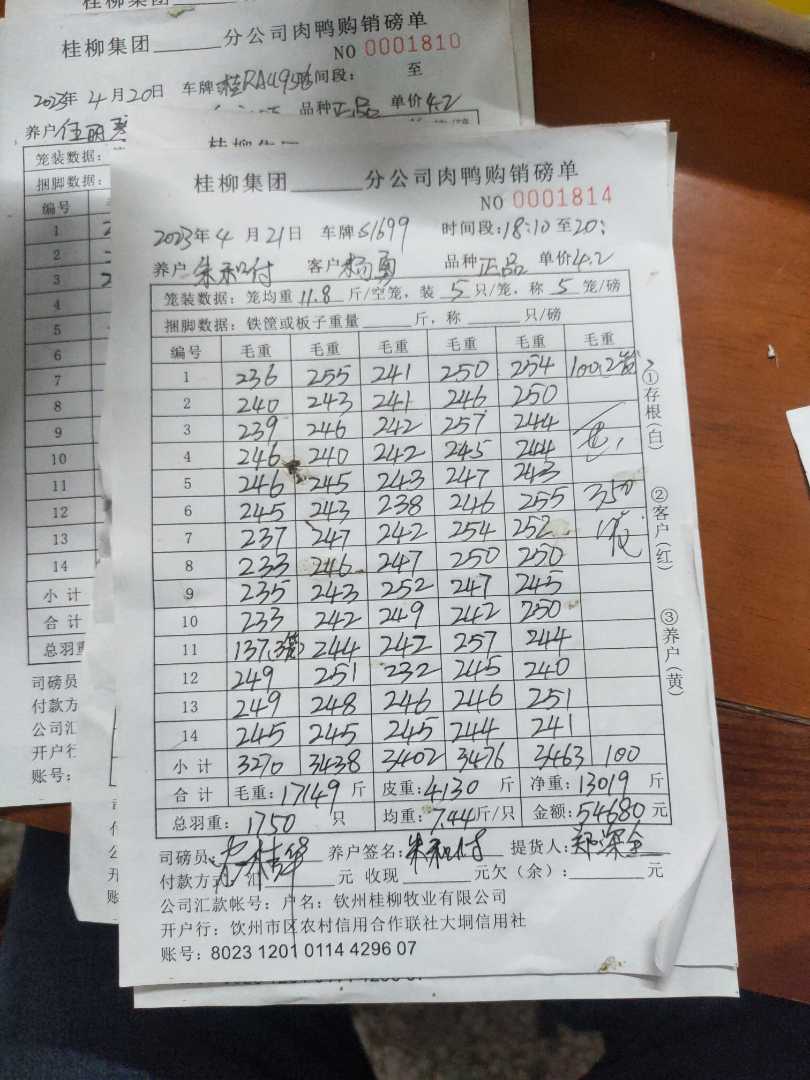 桂柳集团
桂柳集团______分公司肉鸭购销磅单
NO 0001810
2023年4月20日 车牌 间段: 至
品种正品 单价4.2
养户
笼装数据:
捆脚数据:
编号
1
2
3
4
5
6
7
8
9
10
11
12
13
14
小 计
合 计
总羽重
司磅员
付款方
公司汇
开户行
账号:
桂柳集团______分公司肉鸭购销磅单
NO 0001814
2023年4月21日 车牌S1699 时间段:18:10至20:
养户朱和付 客户杨勇 品种正品 单价4.2
笼装数据: 笼均重11.8斤/空笼，装5只/笼，称5笼/磅
捆脚数据: 铁筐或板子重量____斤，称____只/磅
编号 毛重 毛重 毛重 毛重 毛重 毛重
1 236 255 241 250 254 100.2
2 240 243 241 246 250
3 239 246 242 257 244
4 246 240 242 245 244
5 246 245 243 247 243
6 245 243 238 246 255 350
7 237 247 242 254 252
8 233 246 247 250 250
9 235 243 252 247 245
10 233 242 249 242 250
11 137.3 244 242 257 244
12 249 251 232 245 240
13 249 248 246 246 251
14 245 245 245 244 241
小 计 3270 3438 3402 3476 3463 100
合 计 毛重:17149斤 皮重:4130斤 净重:13019斤
总羽重: 1750 只 均重:7.44斤/只 金额:54680元
司磅员: 养户签名:朱和付 提货人:郑深全
付款方式: 汇____元 收现____元欠（余）:____元
公司汇款帐号: 户名: 钦州桂柳牧业有限公司
开户行: 钦州市区农村信用合作联社大垌信用社
账号: 8023 1201 0114 4296 07
①存根(白)
②客户(红)
③养户(黄)